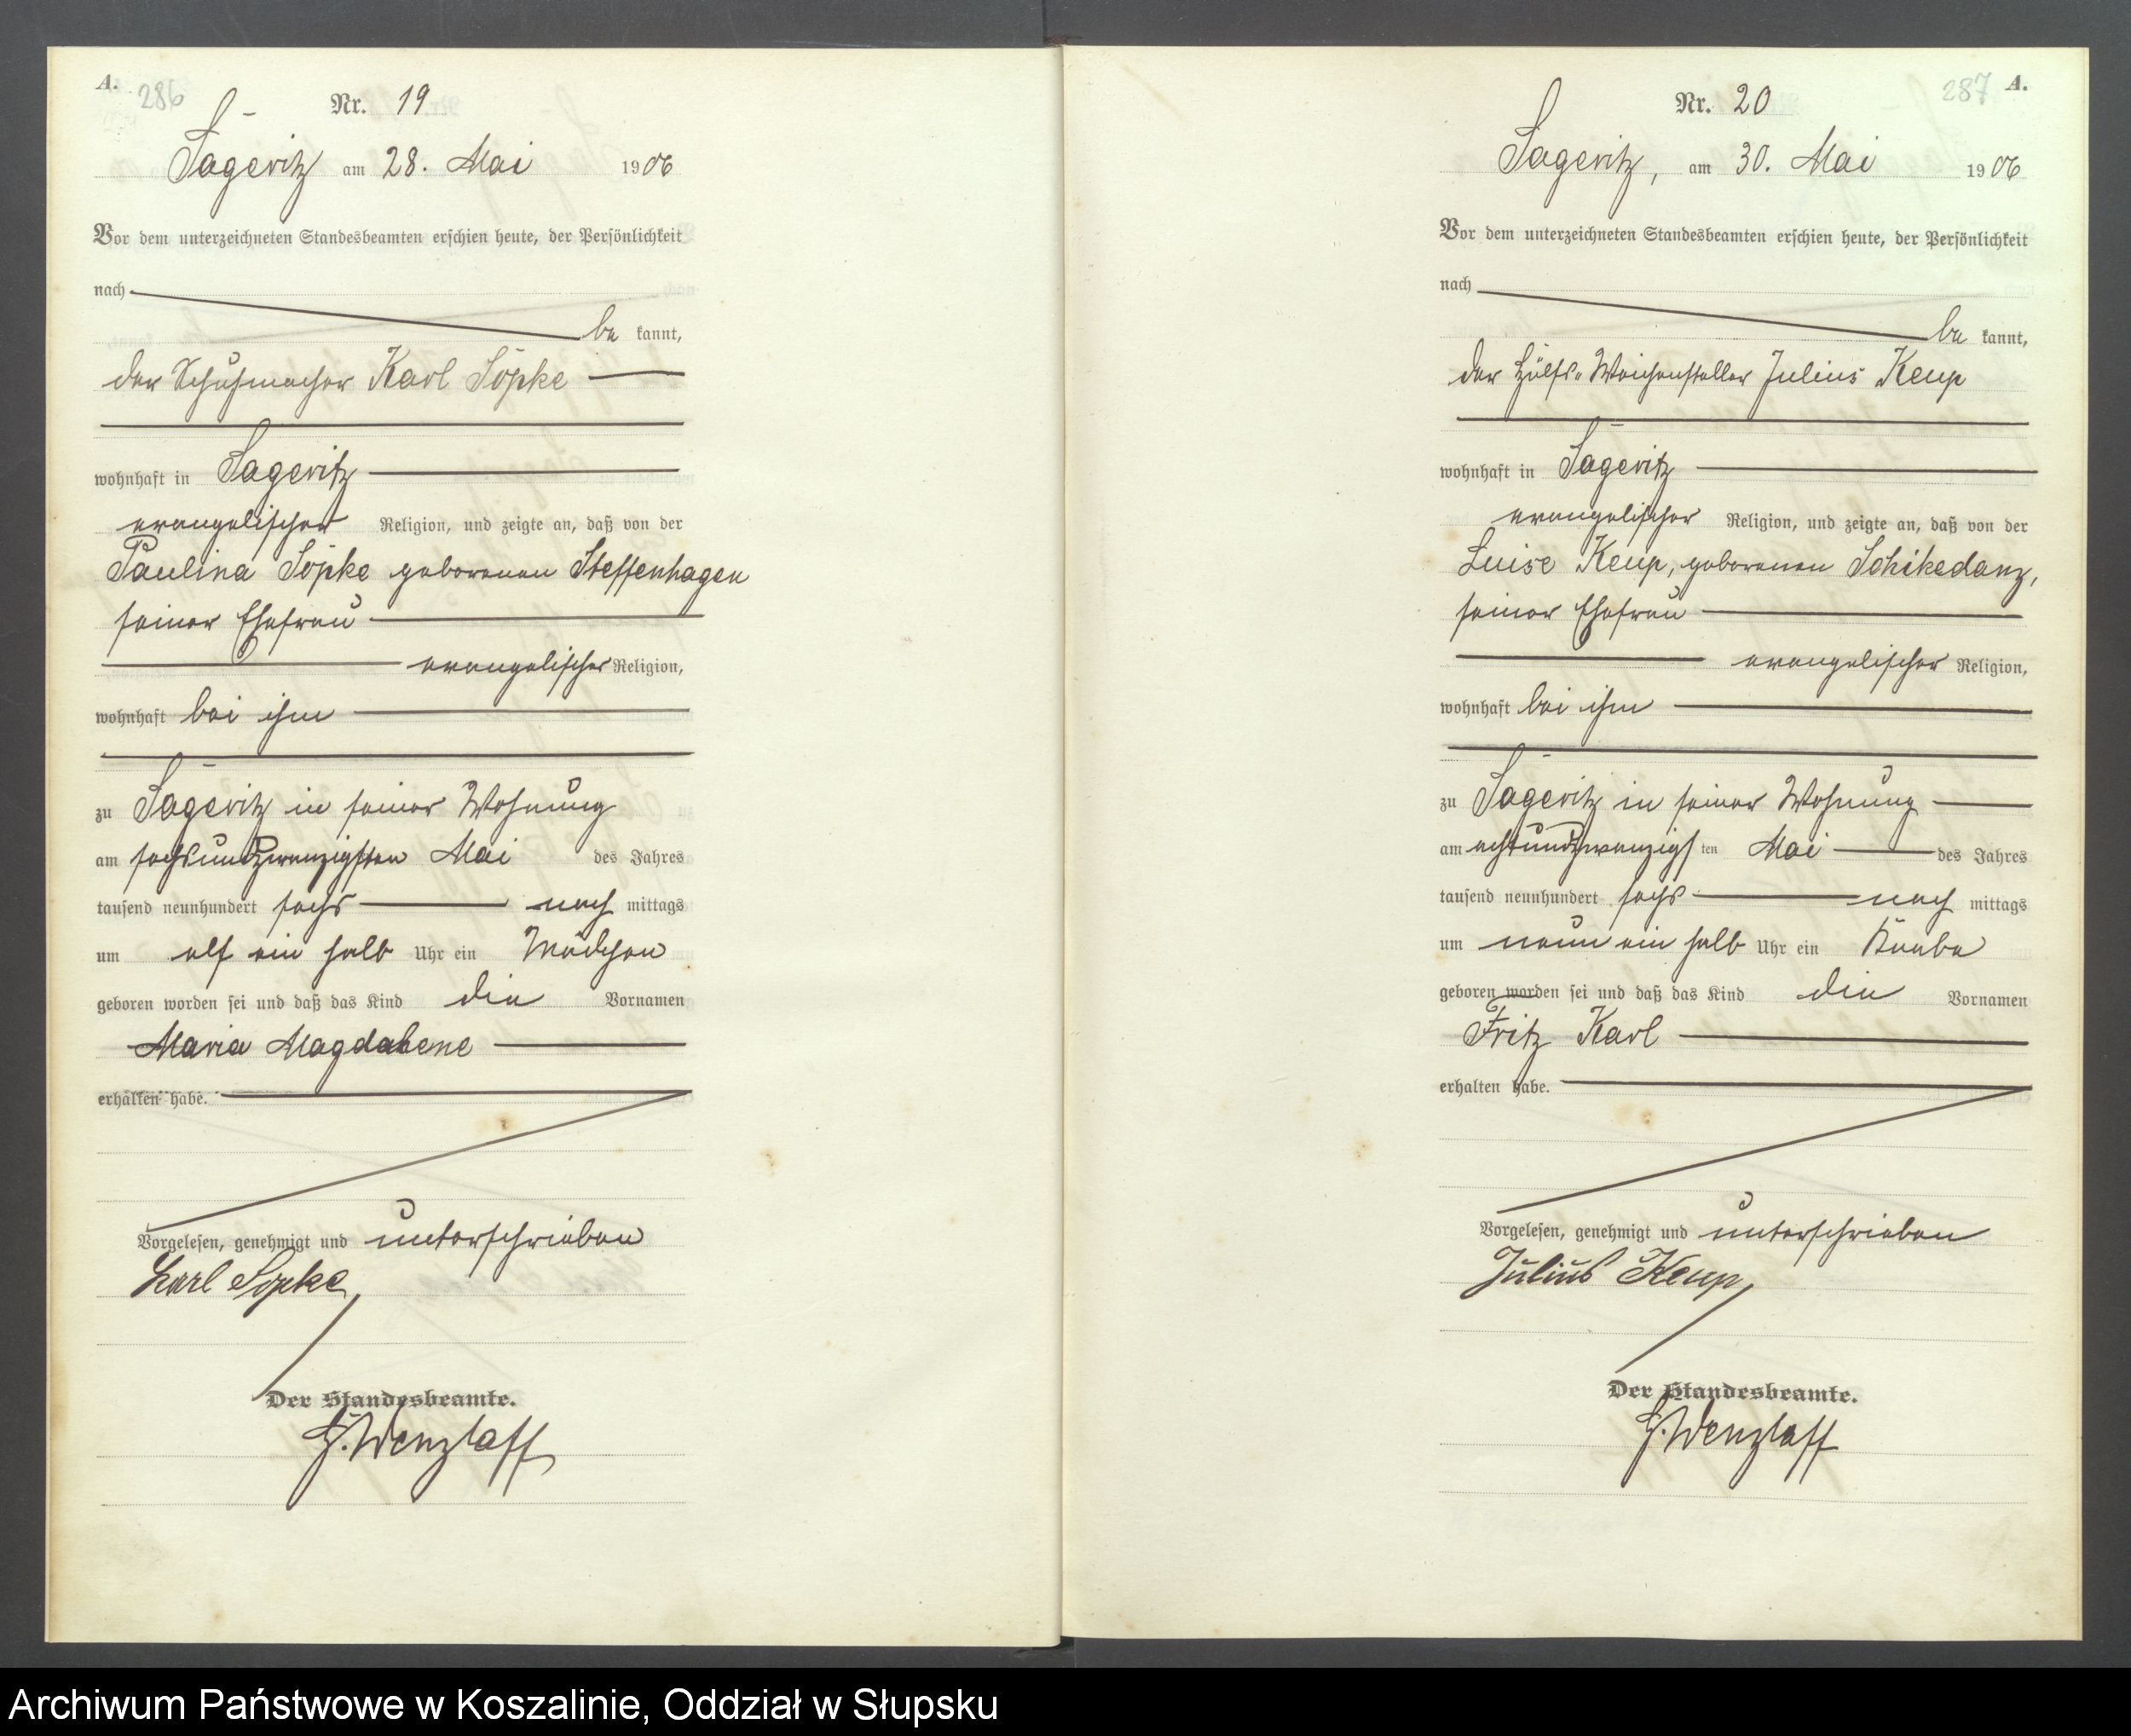 A.
286
Nr. 19
Sageritz am 28. Mai 1906
Vor dem unterzeichneten Standesbeamten erschien heute, der Persönlichkeit
nach
be kannt,
der Schuhmacher Karl Söpke
wohnhaft in Sageritz
evangelischer Religion, und zeigte an, daß von der
Paulina Söpke geborenen Steffenhagen
seiner Ehefrau
evangelischer Religion,
wohnhaft bei ihm
zu Sageritz in seiner Wohnung
am sechsundzwanzigsten Mai des Jahres
tausend neunhundert sechs nach mittags
um elf ein halb Uhr ein Mädchen
geboren worden sei und daß das Kind die Vornamen
Maria Magdalene
erhalten habe.
Vorgelesen, genehmigt und unterschrieben
Karl Söpke
Der Standesbeamte.
H. Wenzlaff
287 A.
Nr. 20
Sageritz, am 30. Mai 1906
Vor dem unterzeichneten Standesbeamten erschien heute, der Persönlichkeit
nach
be kannt,
der Hülfs-Weichensteller Julius Keup
wohnhaft in Sageritz
evangelischer Religion, und zeigte an, daß von der
Luise Keup, geborenen Schikedanz,
seiner Ehefrau
evangelischer Religion,
wohnhaft bei ihm
zu Sageritz in seiner Wohnung
am achtundzwanzigsten Mai des Jahres
tausend neunhundert sechs nach mittags
um neun ein halb Uhr ein Knabe
geboren worden sei und daß das Kind die Vornamen
Fritz Karl
erhalten habe.
Vorgelesen, genehmigt und unterschrieben
Julius Keup
Der Standesbeamte.
H. Wenzlaff
Archiwum Państwowe w Koszalinie, Oddział w Słupsku